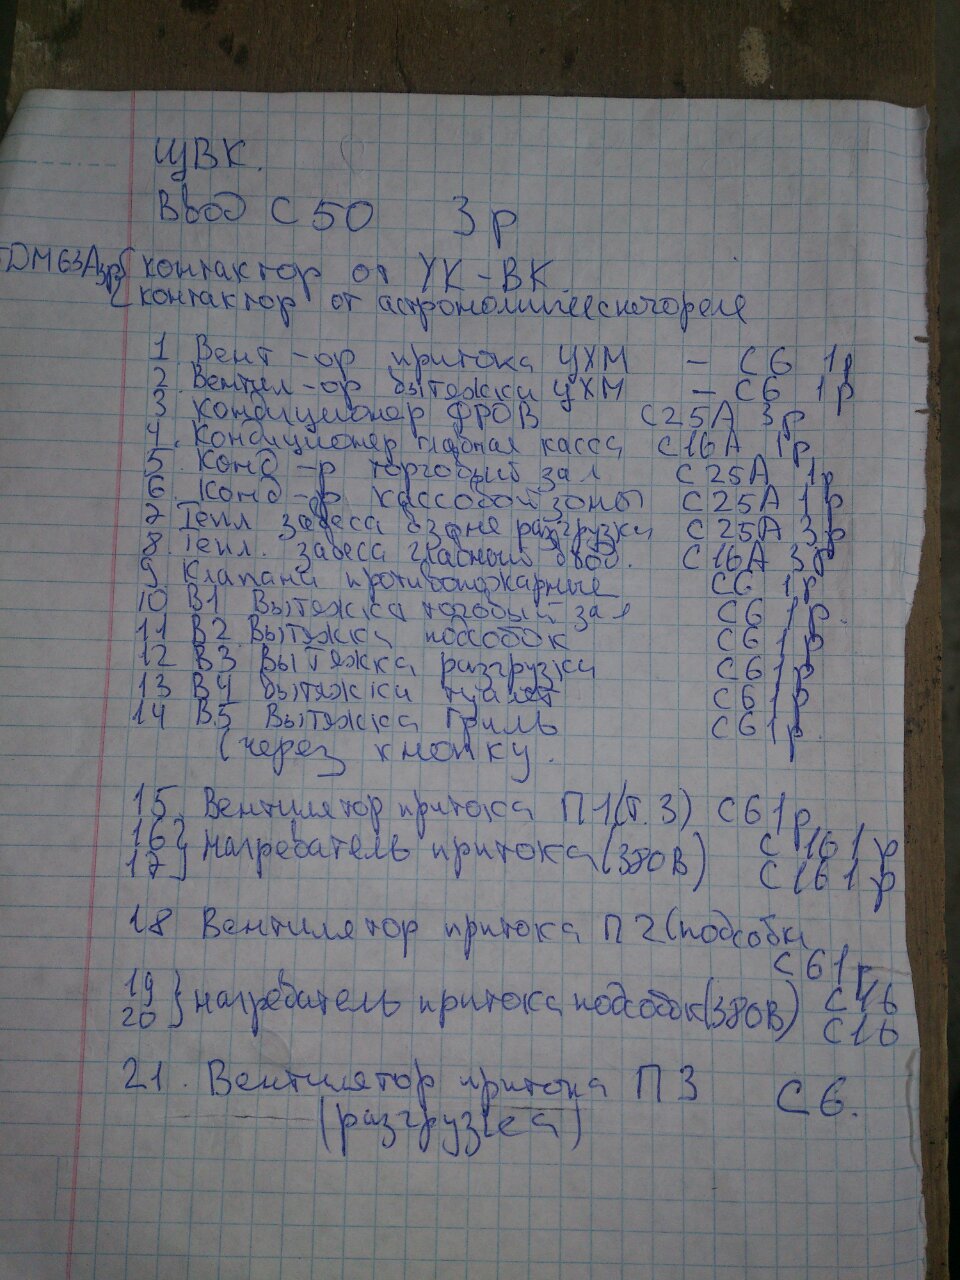 ЩВК.
Ввод С50 3р
TDM63A3р { контактор от УК-ВК.
контактор от астрономического реле
1 Вент-ор притока ЦХМ - С6 1р
2. Вентил-ор вытяжки ЦХМ - С6 1р
3 Кондиционер ФРОВ С25А 3р
4. Кондиционер главная касса С16А 1р
5. Конд-р торговый зал С25А 1р
6. Конд-ор. кассовой зоны С25А 1р
7 Тепл завеса в зоне разгрузки С25А 3р
8. Тепл. завеса главного ввод. С16А 3р
9 Клапана противопожарные С6 1р
10 В1 Вытяжка тогобый зал С6 1р.
11 В2 Вытяжка подсобок С6 1р
12 В3 Вытяжка разгрузка С6 1р
13 В4 вытяжки туалет С6 1р
14 В.5 Вытяжка Гриль С6 1р
(через кнопку.
15. Вентилятор притока П1(т.3) С6 1р
16 } нагреватель притока (380В) С16 1р
17 С16 1р
18 Вентилятор притока П2(подсобки
С6 1р
19 } нагреватель притока подсобок(380В) С16
20 С16
21. Вентилятор притока П3 С6.
(разгрузка)